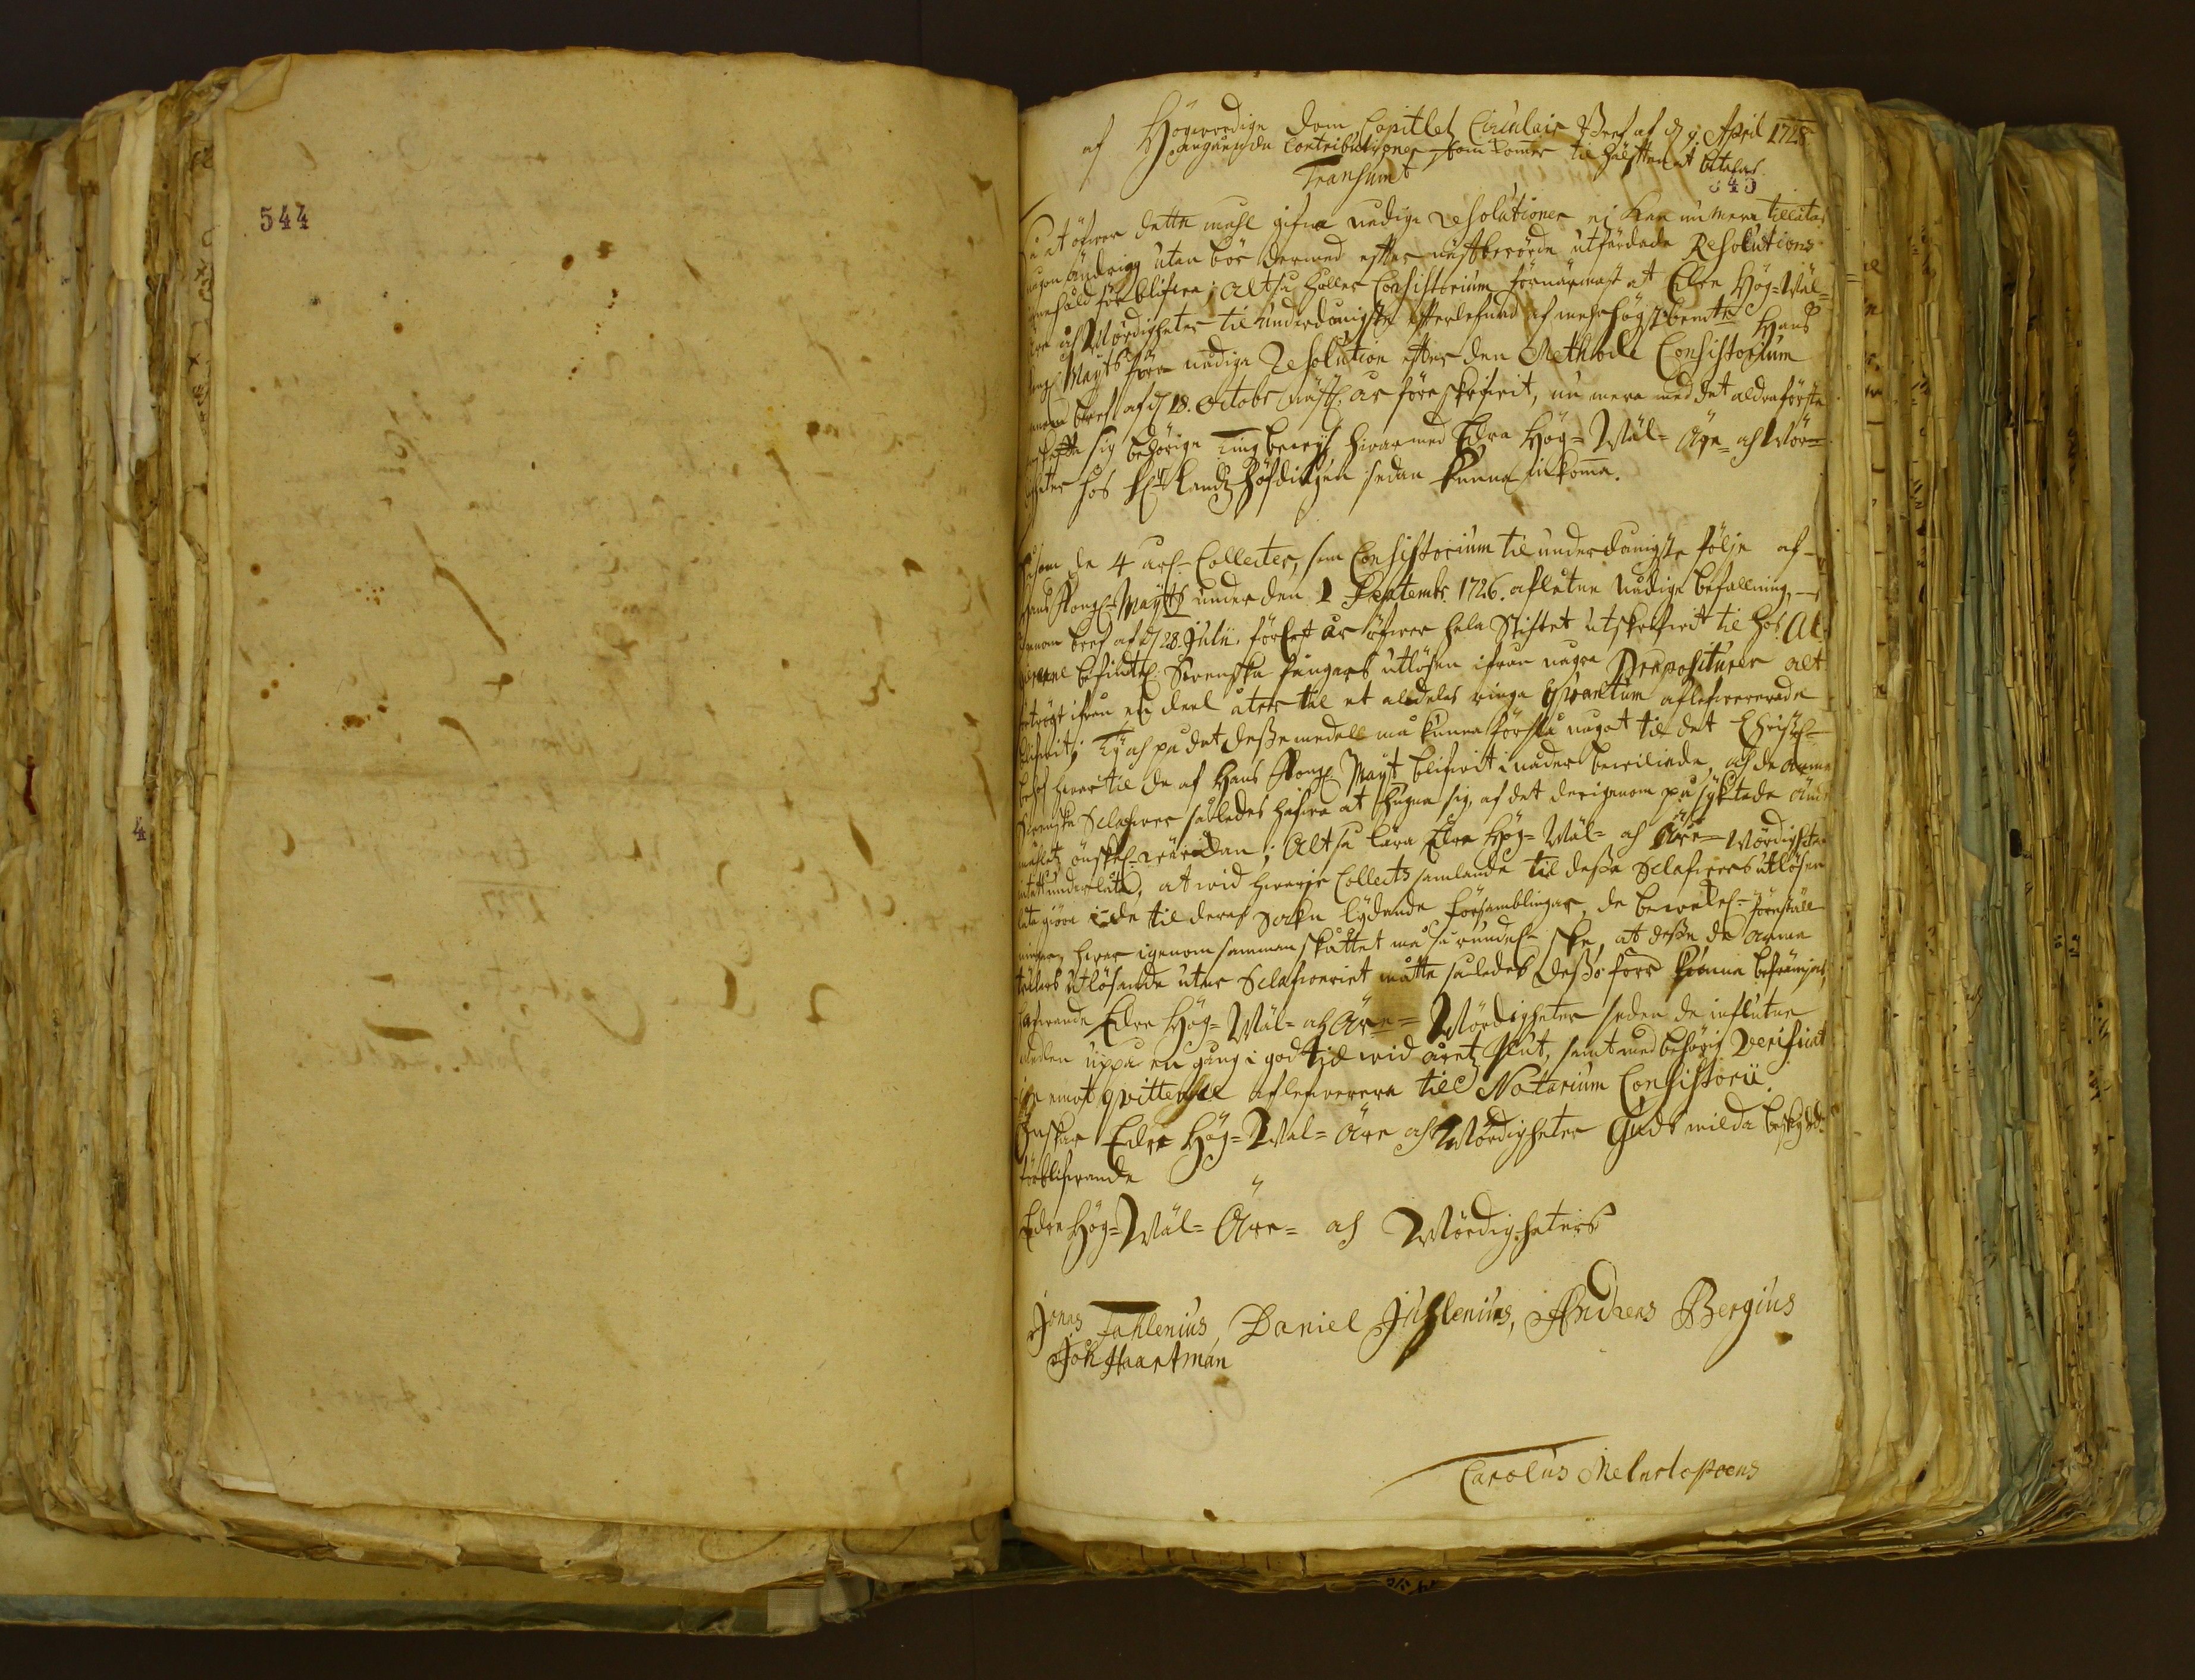 544
af Högwördige Dom Capitlet Circulair Bref af d 9 April 1728.
angående Contributioner som komer til hälfften at betahlas.
Transumt
545
Så at öfwer dette mahl gifne nådige Resolutioner ej kan nu mera tillåtas
någon ändring utan bör dermed efter näst berörde utfärdade Resolutions
innehåld förblifwa; Altså håller Consistorium förnämast at Edre Hög-Wäl-
Äre och Wördigheter til underdånigste efterlefnad af mehrhögstbemte Hans
Kongl Mayts nådiga Resolution efter den Methode Consistorium
genom bref af d 18. Octobr näst år föreskrifwit, nu mera med det aldraförsta
skaffa sig behörige Tingbewijs, hwarmed Edra Hög-Wäl-Äre- och Wör-
digheter hos H Landzhöfdingen sedan kunna inkomma.
Såsom de 4 års Collecter, som Consistorium til underdånigste följe af
Hans Kongl Mayts under den 1 Septembr. 1726. aflåtne nådige befallning,
genom bref af d 28. Julii. förledt år öfwer hela Stiftet utskrifwit til hos Al-
befintl. Swenska fångars utlösen ifrån någre Præpositurer alt
trögt ifrån en deel åter til et aldeles ringa qvantum aflefwererade
blifwit; Ty och på det desse medel må kunna förslå något til det Christel-
behof hwartil de af Hans Kongl Mayt blifwit i nåder bewiliade, och de arme
Swenska Slafwar således hafwa at hugna sig, af det derigenom påsyftade ände
måhletz önskel-wärdan; Altså lära Edre Hög-Wäl- och Äre-Wördigheter
intet underlåta, at wid hwarje Collects samlande til desse Slafwars utlösen
låta giöra i de til deras Sokn lydande församblingar, de bewekel- föreställ-
ningar, hwar igenom sammanskåttet må så rundel ske, at desse de arme
utlösande utur Slafweriet måtte således desto förr kunna befrämjas,
hafwande Edre Hög-Wäl- och Äre-Wördigheter sedan de influtne
medlen uppå en gång i god tid wid åretz slut, samt med behörig Verificat
emot qvittence aflefwerera til Notarium Consistorii.
Önskar Edre Hög-Wäl-Äre och Wördigheter Guds milda beskydd
förblifwande
Edre Hög-Wäl-Äre- och Wördigheters
Jonas Fahlenius, Daniel Juslenius, Andreas Bergius
Joh Haartman
Carolus Melartopoeus
4